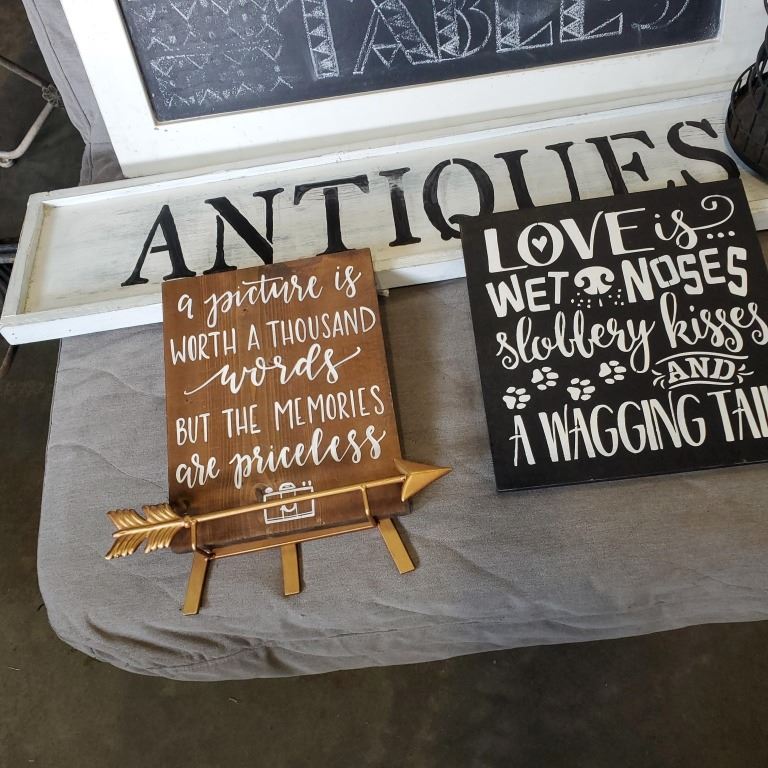 TABLES
ANTIQUES
a picture is
WORTH A THOUSAND
words
BUT THE MEMORIES
are priceless
LOVE is...
WET NOSES
slobbery kisses
AND
A WAGGING TAIL